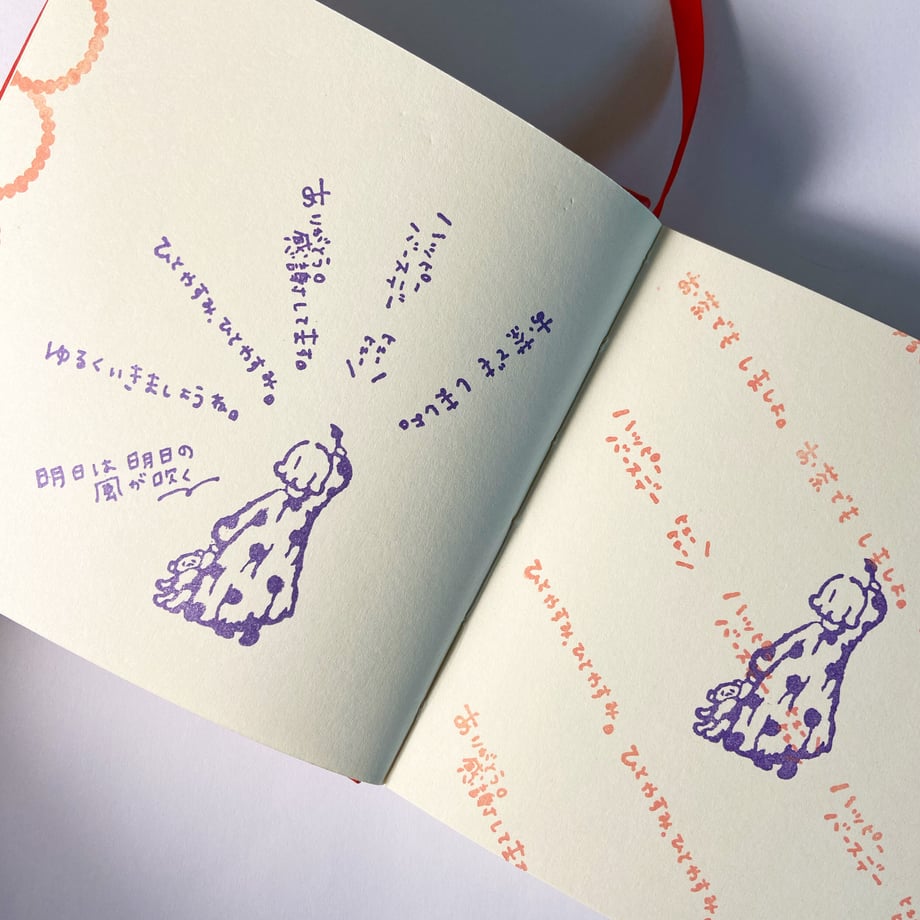 明日は明日の
風が吹く
ゆるくいきましょうね。
ひとやすみ、ひとやすみ。
ありがとう。
感謝してます。
ハッピー
バースデー
ヒュー
ヒュー
お茶でもしましょ。
お茶でもしましょ。
お茶でもしましょ。
ハッピー
バースデー
ヒュー
ヒュー
ハッピー
バースデー
ヒュー
ヒュー
ひとやすみ、ひとやすみ。
ひとやすみ、ひとやすみ
ありがとう。
感謝してま
ハッピー
バースデー